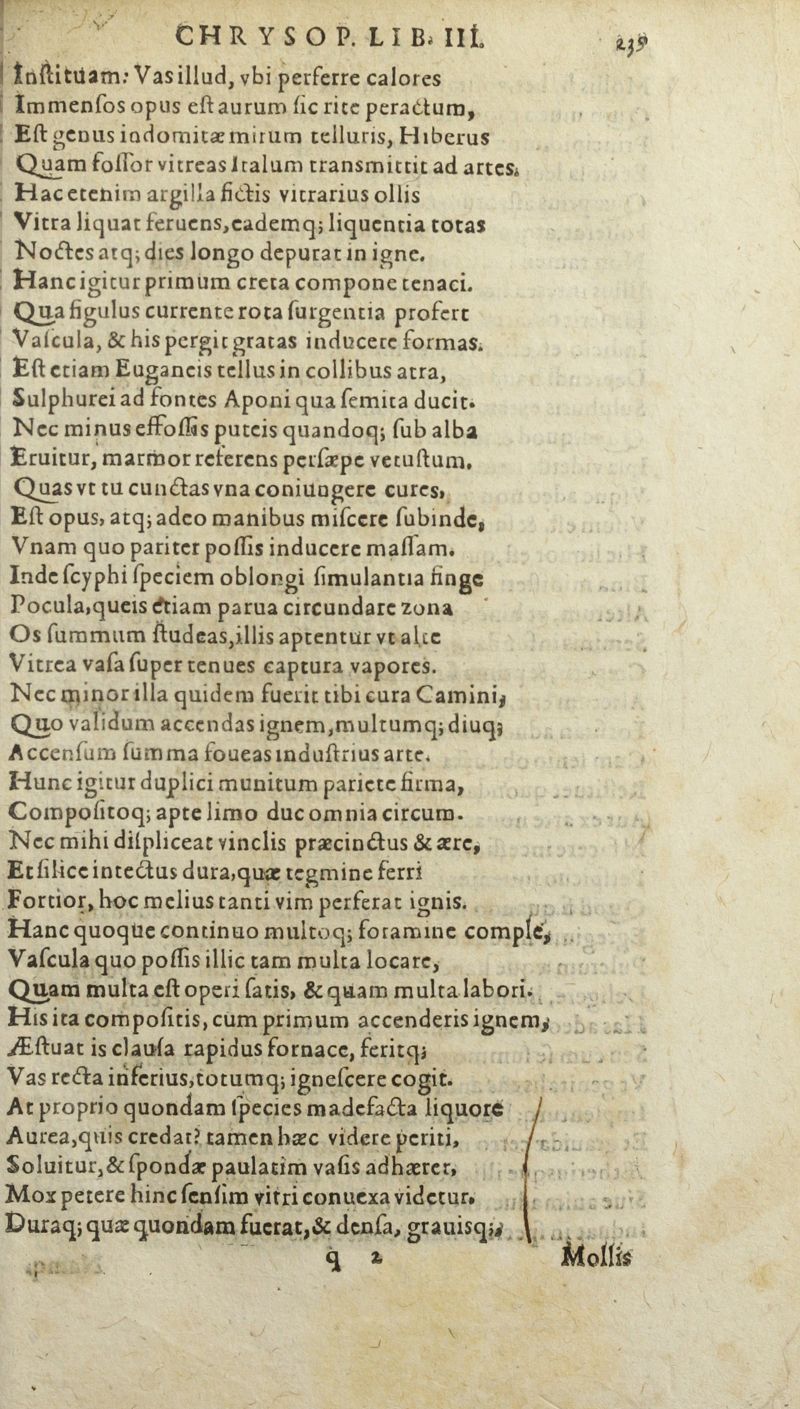 CHRYSOP. LIB. III. 239
Inſtituam: Vas illud, vbi perferre calores
Immenſos opus eſt aurum ſic rite peractum,
Eſt genus indomitæ mirum telluris, Hiberus
Quam foſſor vitreas Italum transmittit ad artes.
Hac etenim argilla fictis vitrarius ollis
Vitra liquat feruens, eademq; liquentia totas
Noctes atq; dies longo depurat in igne.
Hanc igitur primum creta compone tenaci.
Qua figulus currente rota ſurgentia profert
Vaſcula, & his pergit gratas inducere formas.
Eſt etiam Euganeis tellus in collibus atra,
Sulphurei ad fontes Aponi qua ſemita ducit.
Nec minus effoſſis puteis quandoq; ſub alba
Eruitur, marmor referens perſæpe vetuſtum.
Quas vt tu cunctas vna coniungere cures,
Eſt opus, atq; adeo manibus miſcere ſubinde,
Vnam quo pariter poſſis inducere maſſam.
Inde ſcyphi ſpeciem oblongi ſimulantia finge
Pocula, queis etiam parua circundare zona
Os ſummum ſtudeas, illis aptentur vt alte
Vitrea vaſa ſuper tenues captura vapores.
Nec minor illa quidem fuerit tibi cura Camini,
Quo validum accendas ignem, multumq; diuq;
Accenſum ſumma foueas induſtrius arte.
Hunc igitur duplici munitum pariete firma,
Compoſitoq; apte limo duc omnia circum.
Nec mihi diſpliceat vinclis præcinctus & ære,
Et ſilice intectus dura, quæ tegmine ferri
Fortior, hoc melius tanti vim perferat ignis.
Hanc quoque continuo multoq; foramine comple,
Vaſcula quo poſſis illic tam multa locare,
Quam multa eſt operi ſatis, & quam multa labori.
His ita compoſitis, cum primum accenderis ignem,
Æſtuat is clauſa rapidus fornace, feritq;
Vas recta inferius, totumq; igneſcere cogit.
At proprio quondam ſpecies madefacta liquore
Aurea, quis credat? tamen hæc videre periti,
Soluitur, & ſpondæ paulatim vaſis adhæret,
Mox petere hinc ſenſim vitri conuexa videtur.
Duraq; quæ quondam fuerat, & denſa, grauisq;,
q 2 Mollis